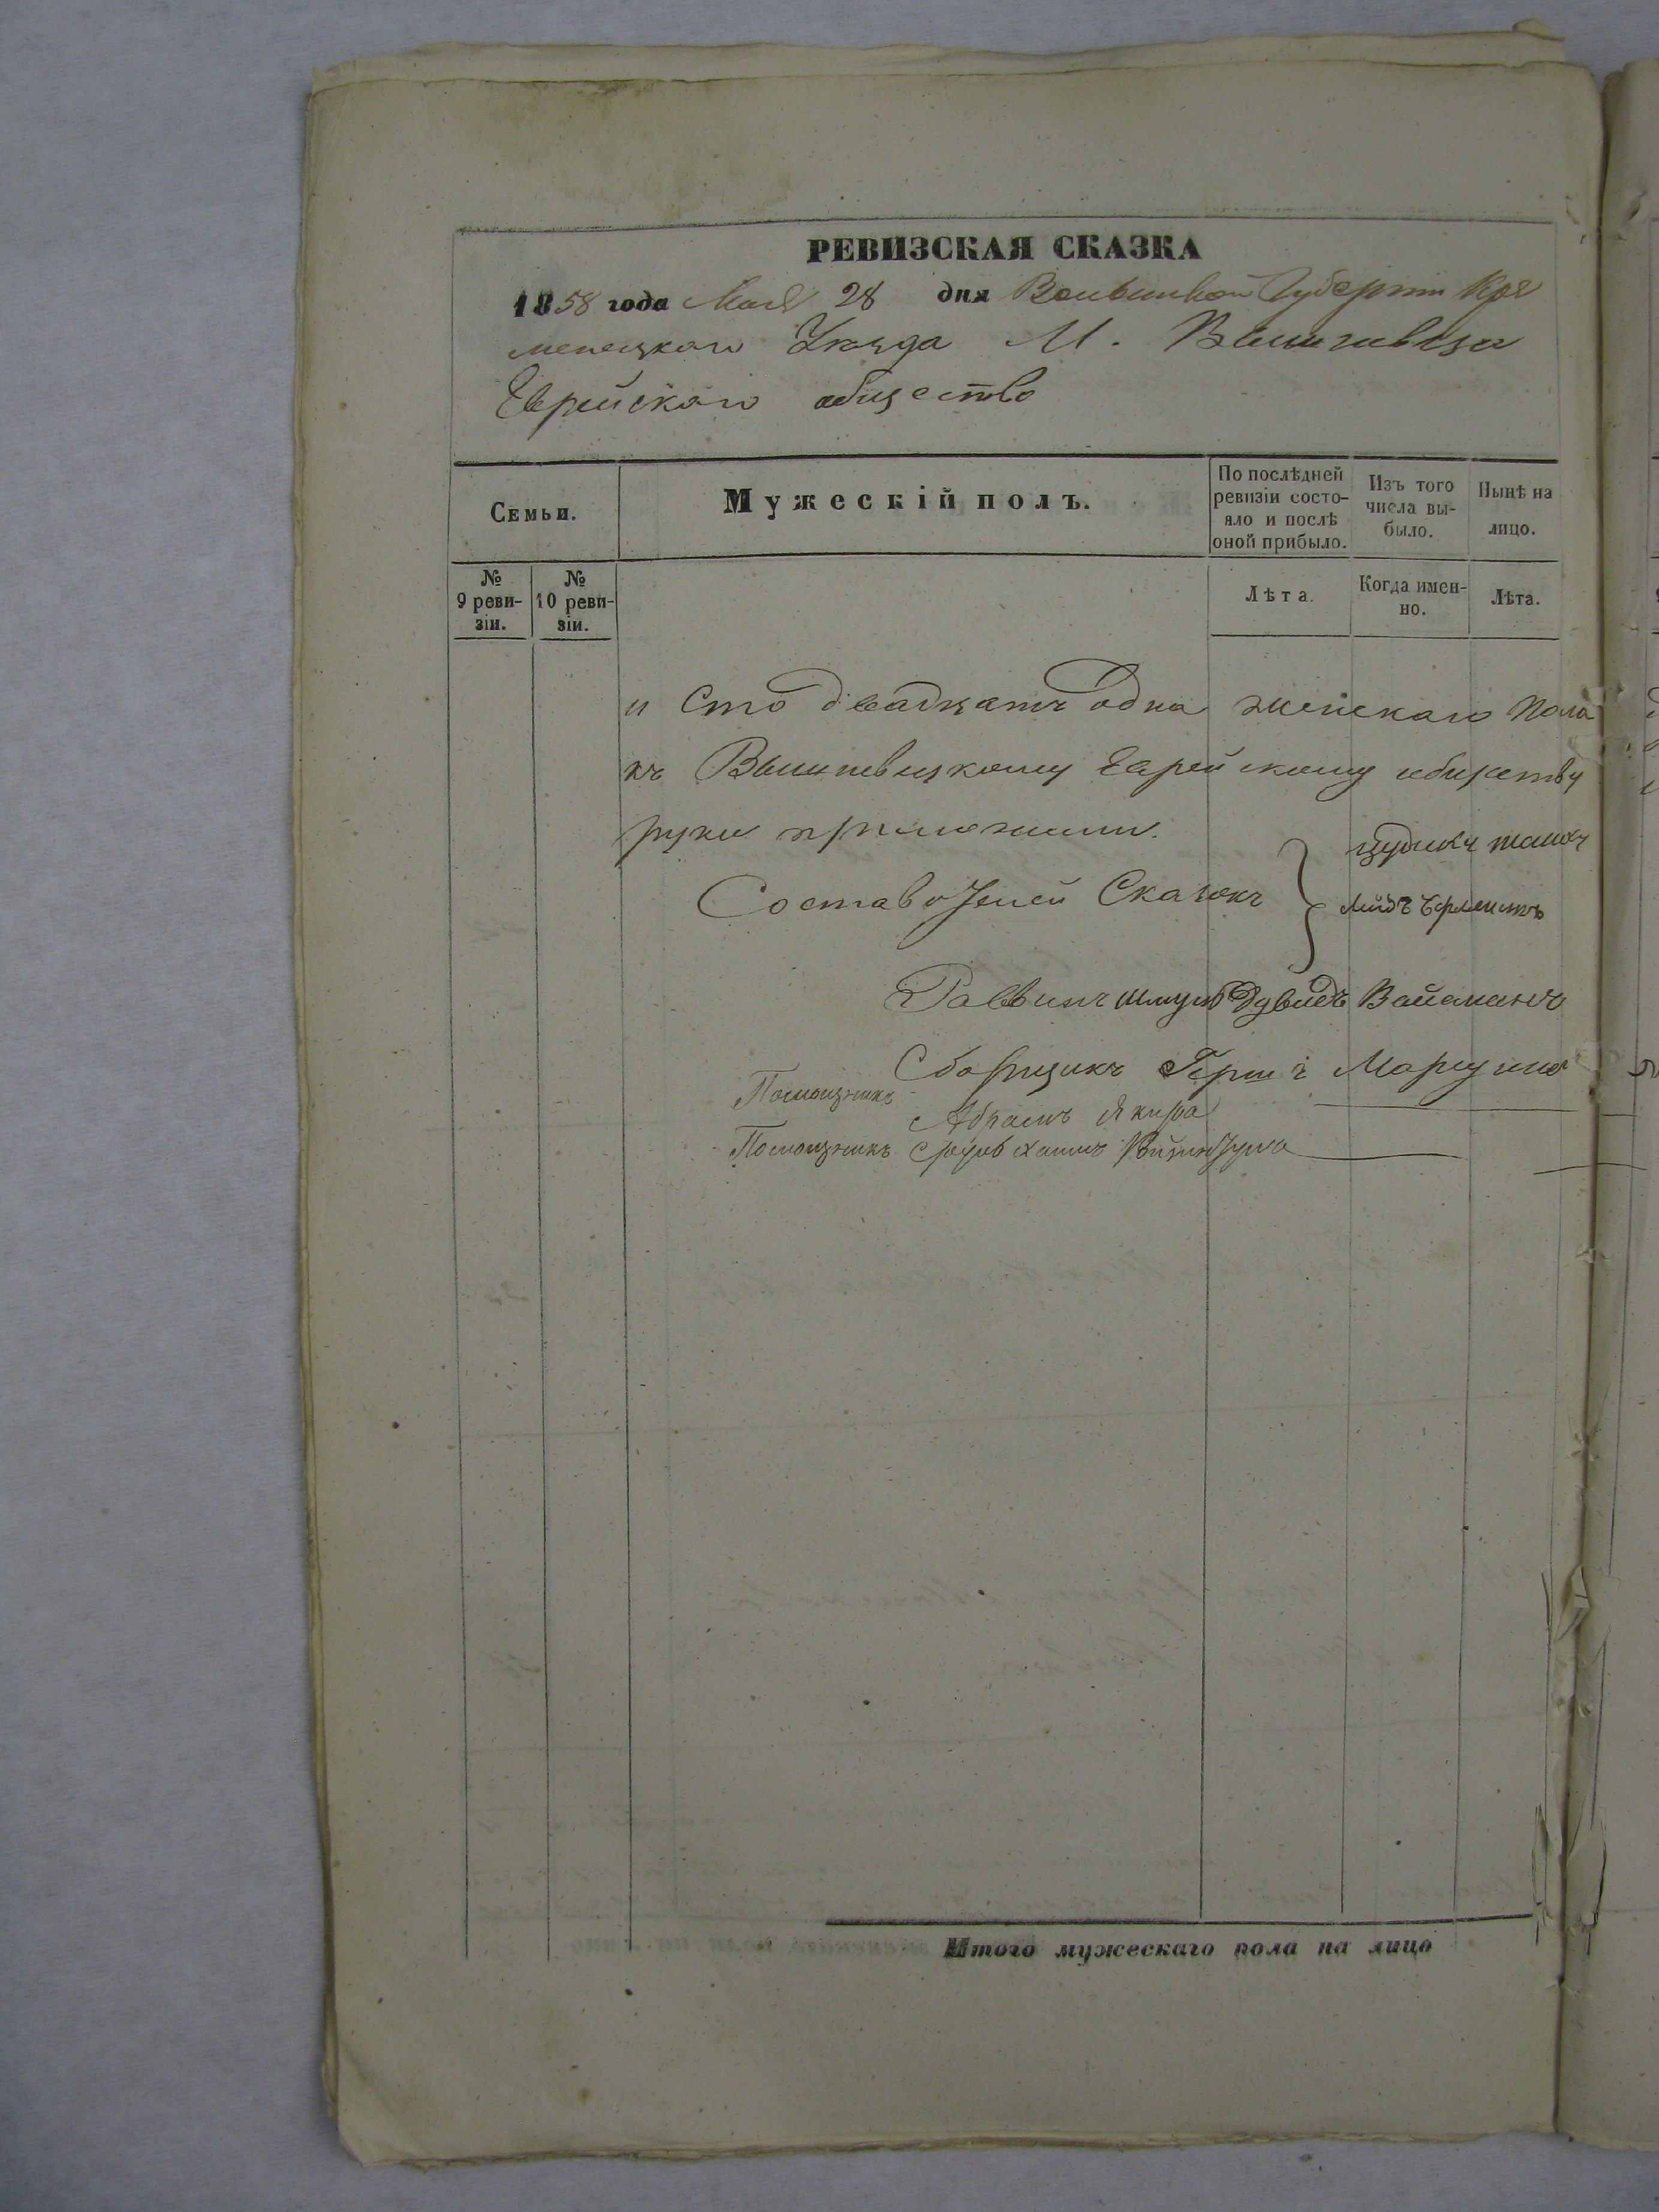 РЕВИЗСКАЯ СКАЗКА
1858 года Мая 28 дня Волынской Губернiи Кре
менецкаго Уѣзда М. Вишневца
Еврейскаго общество
Семьи.
Мужескiй полъ.
По послѣдней
ревизiи состо-
яло и послѣ
оной прибыло.
Изъ того
числа вы-
было.
Нынѣ на
лицо.
№
9 реви-
зiи.
№
10 реви-
зiи.
Лѣта.
Когда имен-
но.
Лѣта.
и Сто двадцать одна женскаго пола
къ Вишневецкому Еврейскому обществу
руки приложили.
Составителей Сказокъ
Раввинъ Шмуль Дувидъ Вайсманъ
Сборщикъ Гершъ
Помощникъ
Абрамъ Якира
Помощникъ
Итого мужескаго пола на лицо